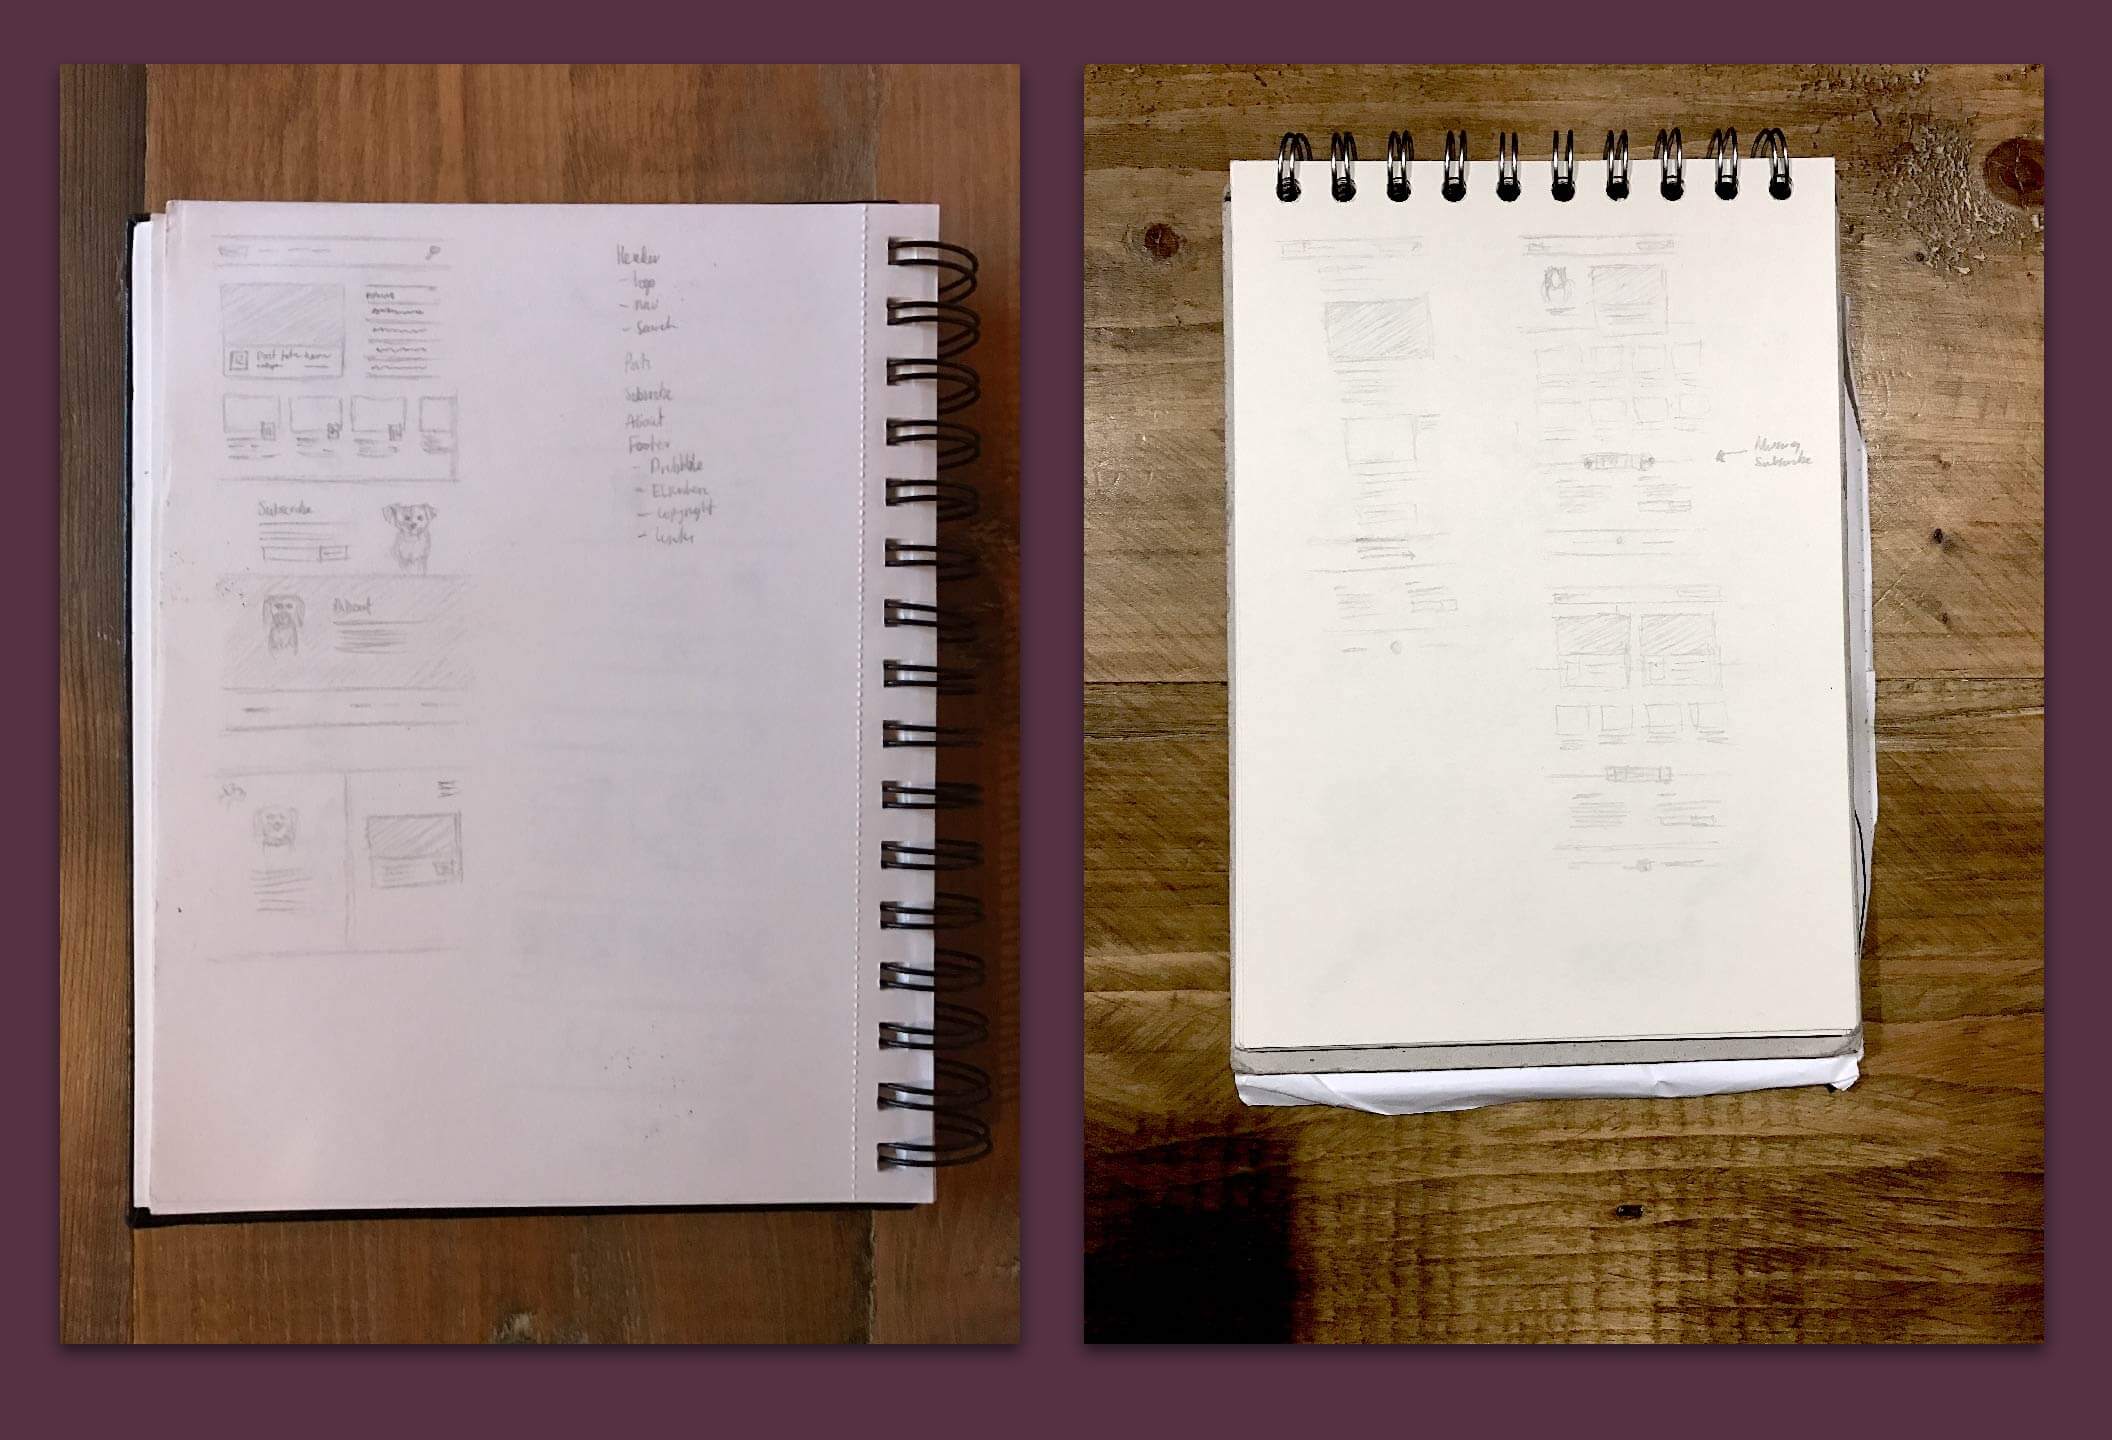 Post title here
Subscribe
About
Header
- logo
- nav
- Search
Posts
Subscribe
About
Footer
- Dribbble
- Elsewhere
- copyright
- Twitter
Missing
Subscribe